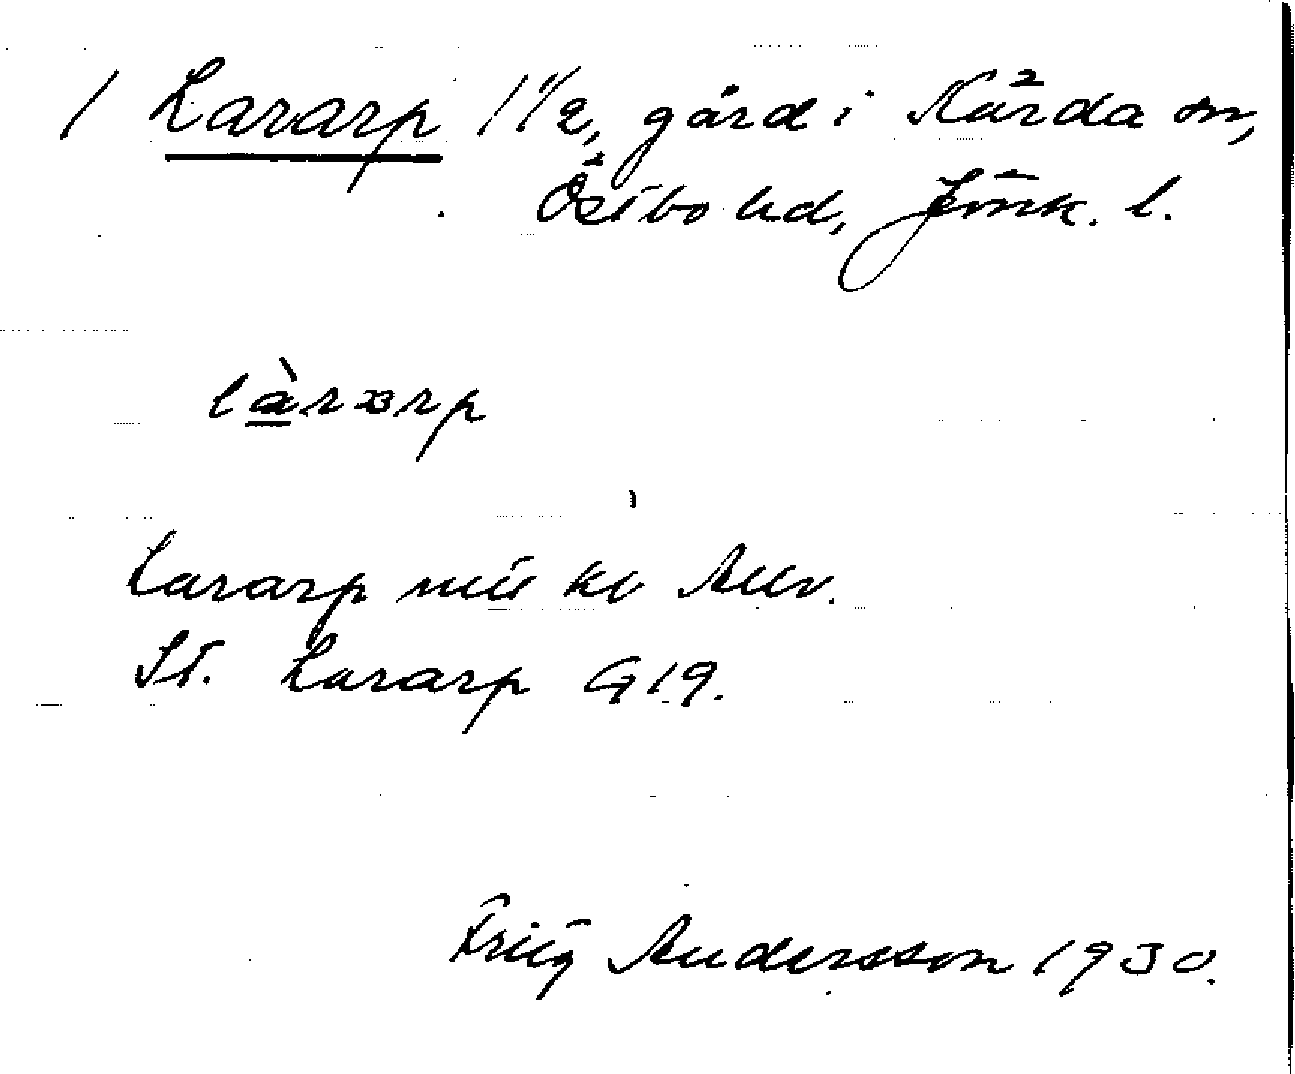 1 Lararp 1 1/2, gård i Kärda sn,
Östbo hd, Jönk. l.
làrarp
Lararp nu kv
St. Lararp G 19.
Andersson 1930.